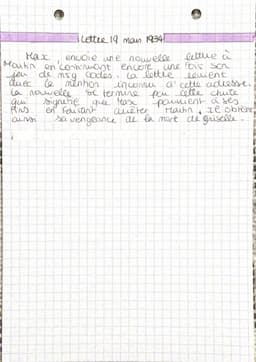 Lettre 19 mars 1934
Max, envoie une nouvelle lettre à
Martin en continuant encore une fois son
jeu de msg codés. La lettre revient
avec le mention inconnu à cette adresse.
La nouvelle se termine par cette chute
qui signifie que Max parvient à ses
fins en faisant arrêter Martin. Il obtient
ainsi sa vengeance de la mort de Griselle.